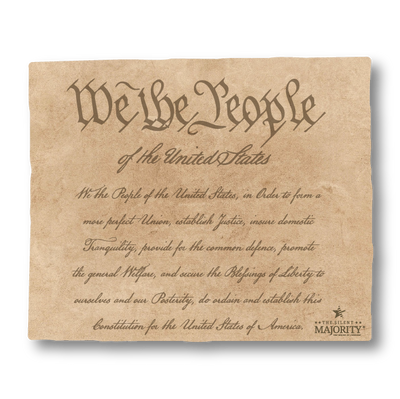 We the People
of the United States
We the People of the United States, in Order to form a
more perfect Union, establish Justice, insure domestic
Tranquility, provide for the common defence, promote
the general Welfare, and secure the Blessings of Liberty to
ourselves and our Posterity, do ordain and establish this
Constitution for the United States of America.
THE SILENT
MAJORITY